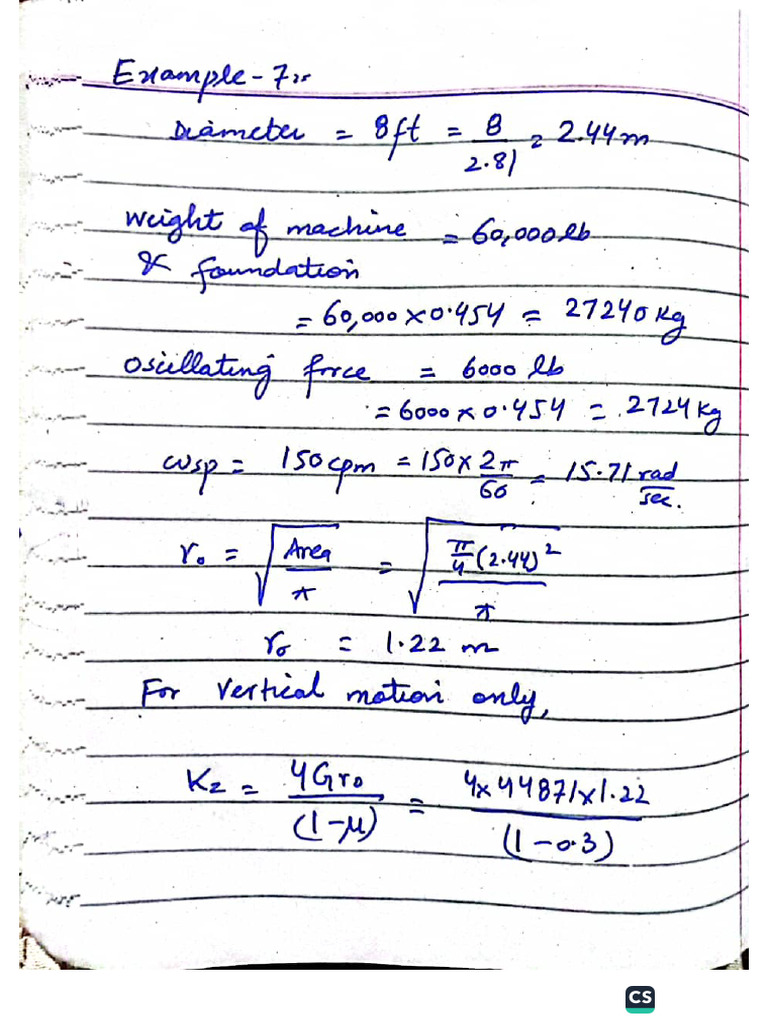 Example-7:-
Diameter = 8ft = 8/2.81 = 2.44m
Weight of machine = 60,000lb
& foundation
= 60,000×0.454 = 27240 kg
Oscillating force = 6000 lb
= 6000×0.454 = 2724kg
wsp = 150cpm = 150×2π/60 = 15.71 rad/sec.
r₀ = √(Area/π) = √(π/4(2.44)²/π)
r₀ = 1.22 m
For vertical motion only,
Kz = 4Gr₀/(1-μ) = 4×44871×1.22/(1-0.3)
CS